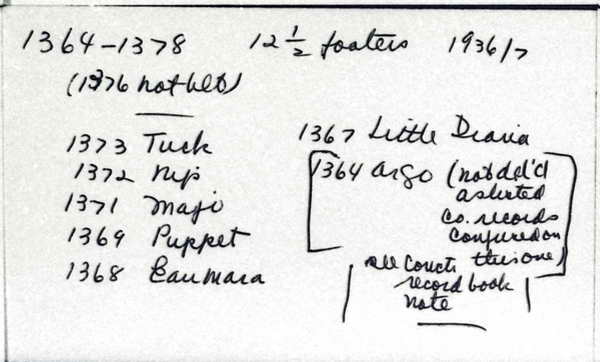 1364-1378 12 1/2 footers 1936/7
(1376 not blt)
1373 Tuck
1372 Nip
1371 Magi
1369 Puppet
1368
1367 Little Diana
1364 Argo (not del'd
as listed
Co. records
confused on
this one)
see Constr.
record book
note